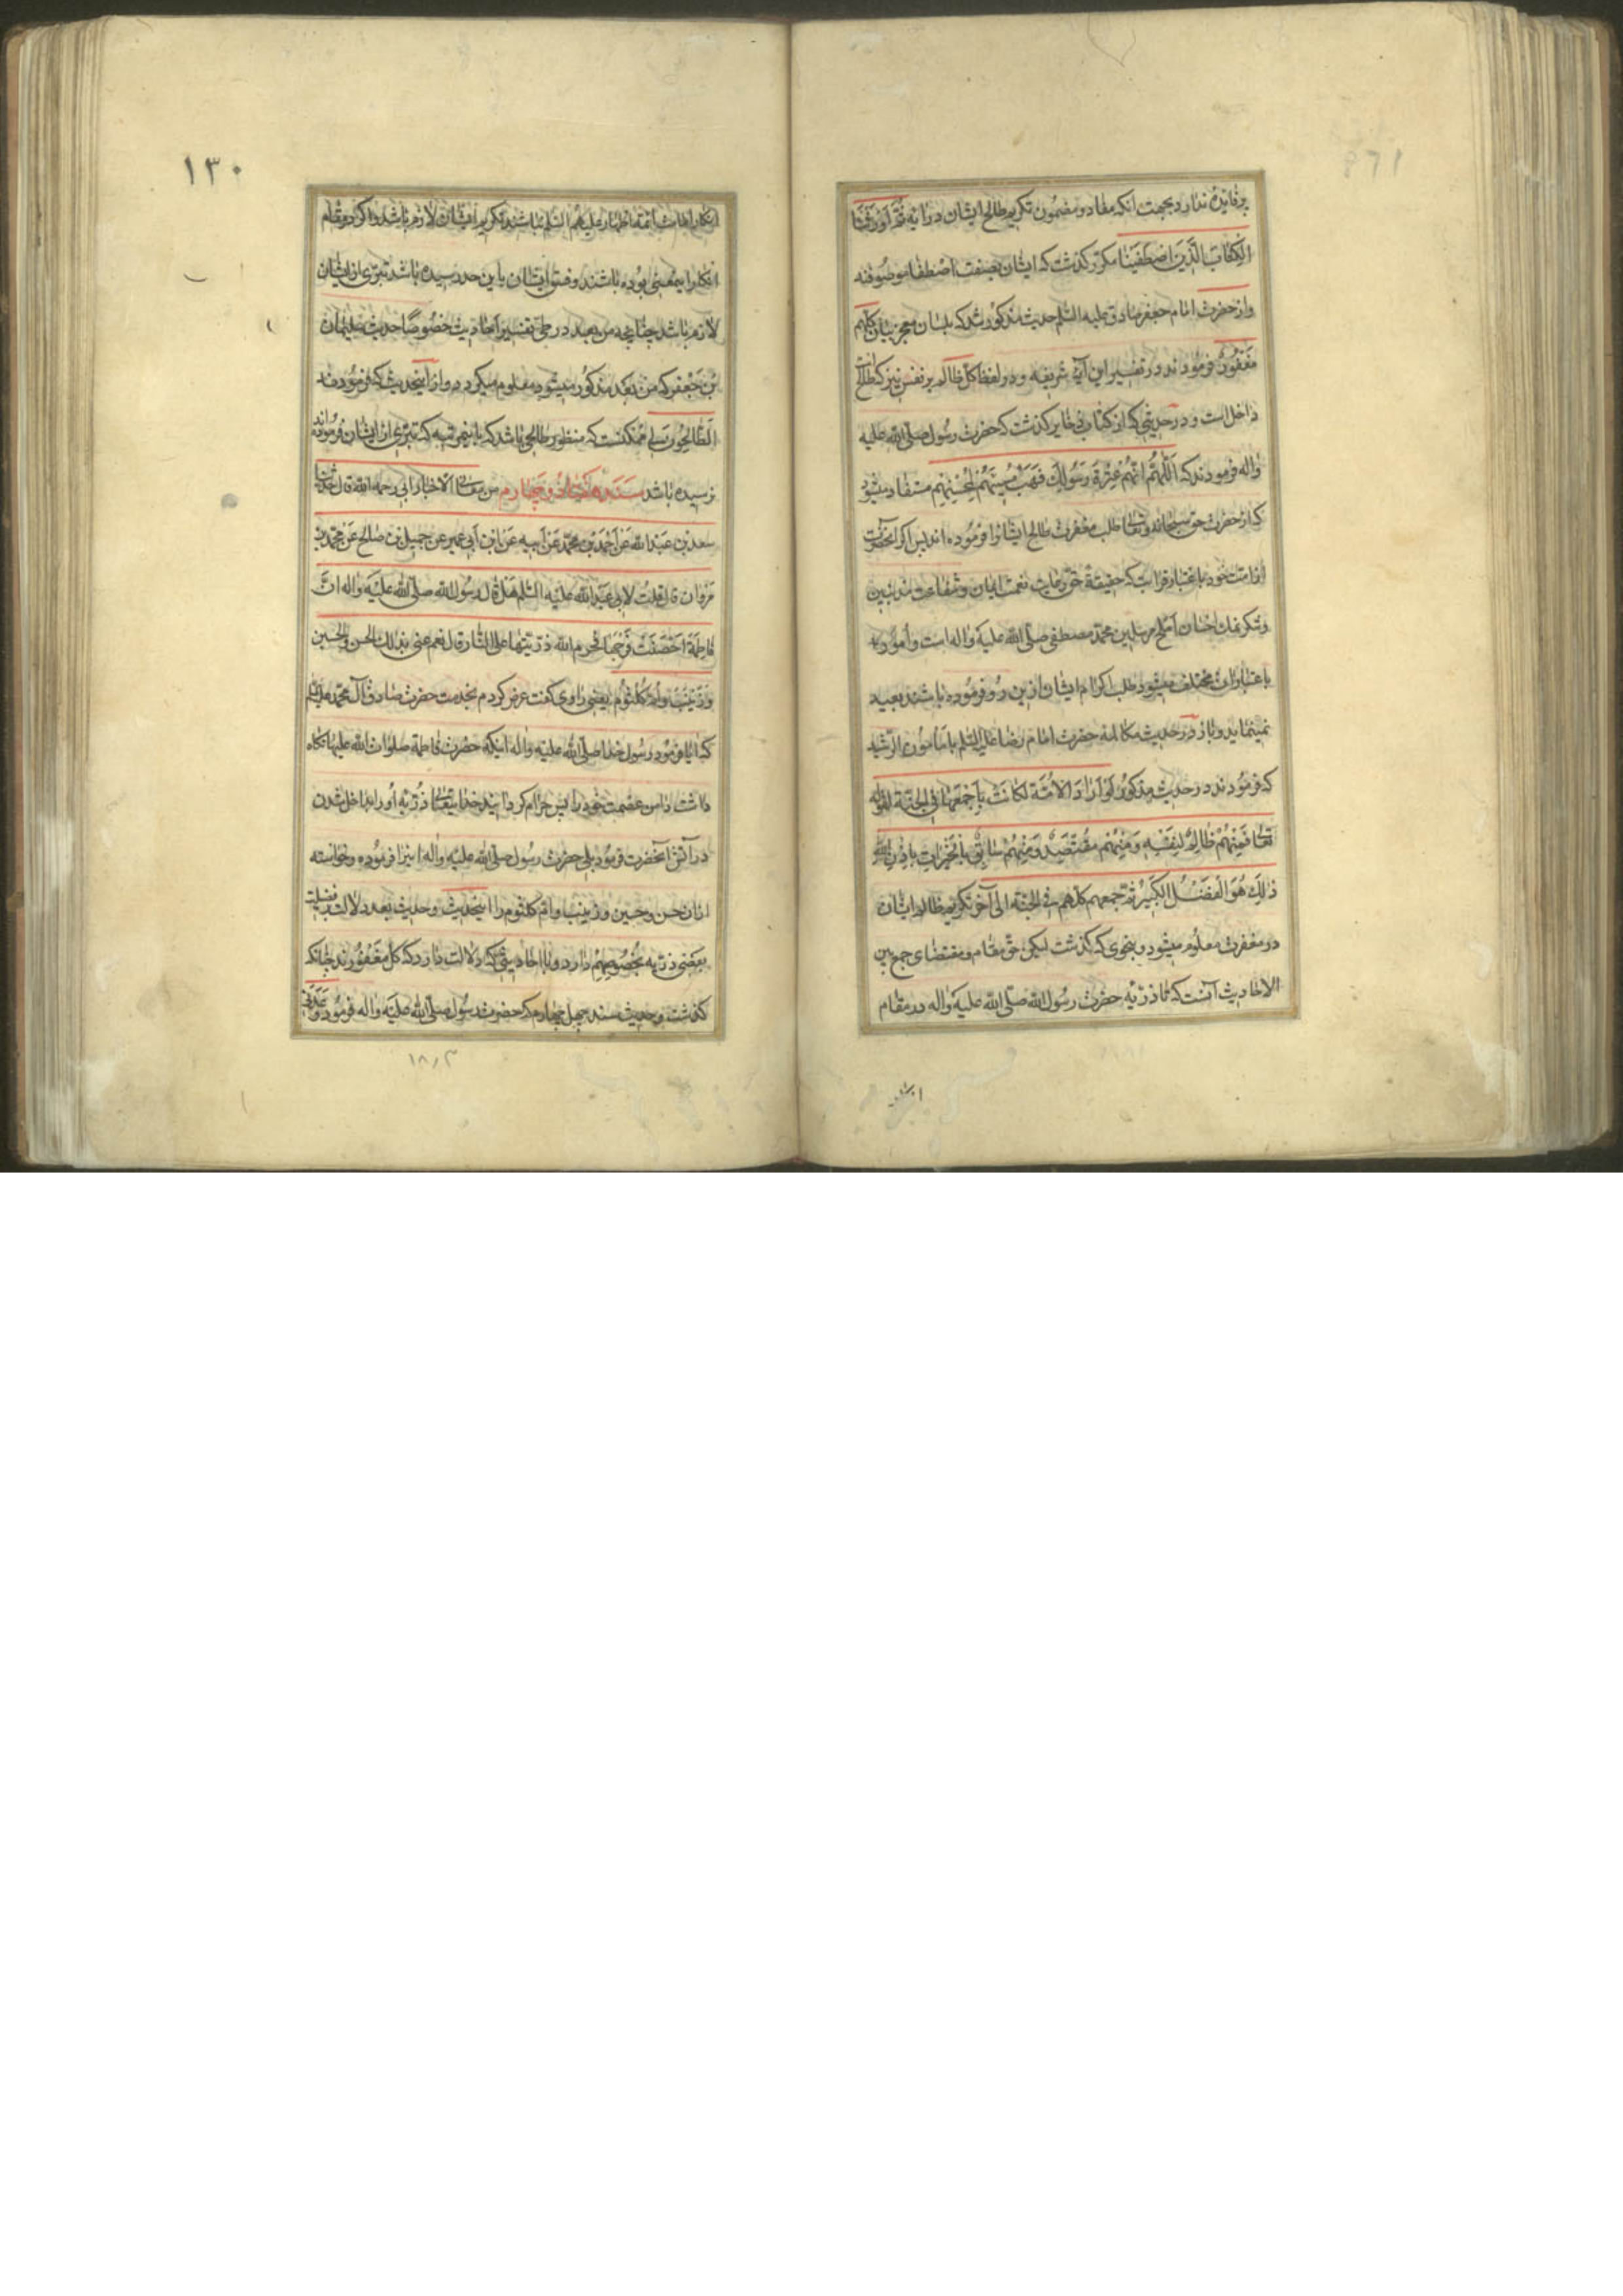 پرفایده ندارد بجهت انکه مفاد و مضمون تکریم طالح ایشان در آیه ثُمَّ اَوْرَثْنَا
الْکِتابَ الَّذینَ اصْطَفَیْنا مکرّر کذشت که ایشان بصفت اصطفا موصوفند
واز حضرت امام جعفر صادق علیه السّلم حدیث مذکور شد که بلسان معجز بیان کلّهم
مَغْفُورٌ فرموده اند در تفسیر این آیهٔ شریفه و در لفظ کلّ ظالم بر نفس نیز که طالح
داخل است و در حدیثی که از کتاب ذخایر کذشت که حضرت رسول صلّی الله علیه
واله فرمودند که اَللّهُمَّ اِنَّهُمْ عِتْرَةُ رَسُولِکَ فَهَبْ مُسیئَهُمْ لِمُحْسِنِهِمْ مستفاد میشود
که از حضرت حق سبحانه وتعالی طلب مغفرت طالح ایشانرا فرموده اند پس اکر آنحضرت
از امت خود باعتبار قرابت که حقیقةً حقّ رعایت نعمت ایمان و شفاعت مذنبین
و تکرمات احسان املح مرسلین محمّد مصطفی صلّی الله علیه واله است و امور
باعتبار ان مختلف میشود طلب اکرام ایشان ازین رو فرموده باشند بعید
نمینماید و باز در حدیث مکالمهٔ حضرت امام رضا علیه السّلم با مأمون الرّشید
که فرمودند در حدیث مذکور لَوْ اَرادَ الْاُمَّةَ لَکانَتْ بِاَجْمَعِها فِی الْجَنَّةِ لقوله
تعالی فَمِنْهُمْ ظالِمٌ لِنَفْسِهِ وَمِنْهُمْ مُقْتَصِدٌ وَمِنْهُمْ سابِقٌ بِالْخَیْراتِ بِاِذْنِ الله
ذلِکَ هُوَ الْفَضْلُ الْکَبیرُ ثمّ جمعهم کلّهم فی الجنّة الی آخر تکریم ظالم ایشان
در مغفرت معلوم میشود و بنحوی که کذشت لیکن حقّ مقام و مقتضای جمع بین
الاحادیث آنست که تا ذرّیّه حضرت رسول الله صلّی الله علیه واله در مقام
انکار
۱۳۰
انکار امامت ائمّه اطهار علیهم السّلم نباشند تکریم ایشان لازم باشد و اکر در مقام
انکار بمعنی بوده باشند و فسق ایشان باین حد رسیده باشد تبرّی از ایشان
لازم باشد چنانچه من بعد در طیّ تفسیر احادیث خصوصًا حدیث سلیمان
بْن جَعْفَر که من بعد مذکور میشود معلوم میکردد و از اینحدیث که فرمودند
الطّالِحُونَ لی ممکنست که منظور طالحی باشد که باینمرتبه که تبرّی از ایشان فرموده اند
نرسیده باشد سند هفتاد و چهارم من معانی الاخبار ابی رحمه الله قال حدّثنا
سعد بن عبد الله عَنْ اَحْمَدَ بن محمّد عَنْ اَبیه عَنْ ابن اَبی عُمیر عَن جمیل بن صالح عَنْ محمّد بن
مَرْوان قالَ قلتُ لابی عَبْدِ الله علیه السّلم هَلْ قالَ رسُول الله صلّی الله عَلَیْه وَاله انَّ
فاطِمَةَ اَحْصَنَتْ فَرْجَها فحرم الله ذرّیّتها علی النّار قال نعم عنی بذلک الحسن والحسین
وَ زَیْنَبَ و اُمَّ کُلْثُوم یعنی راوی کفت عرض کردم بخدمت حضرت صادق آل محمّد علیه السّلم
که آیا فرمود رسول خدا صلّی الله علیه واله اینکه حضرت فاطمة صلوات الله علیها نکاه
داشت دامن عصمت خود را پس حرام کردانید خدایتعالی ذرّیّه او را بداخل شدن
در آتش آنحضرت فرمود بلی حضرت رسول صلّی الله علیه واله اینرا فرموده و خواسته
ازان حسن و حسین و زینب و امّ کلثوم را اینحدیث و حدیث بعد دلالت بر فضیلت
بعضی ذرّیّه بخصوصهم دارد و با احادیثی که دلالت دارد که کلّ مَغْفُورند چنانکه
کذشت و حدیث سند چهل چهارم که حضرت رسول صلّی الله علیه واله فرمود وَعَدَنی